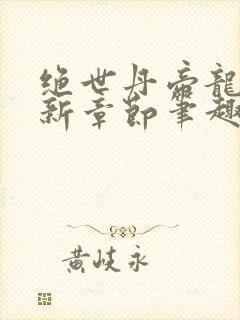 绝世丹帝龍
新章節笔趣
黄岐永